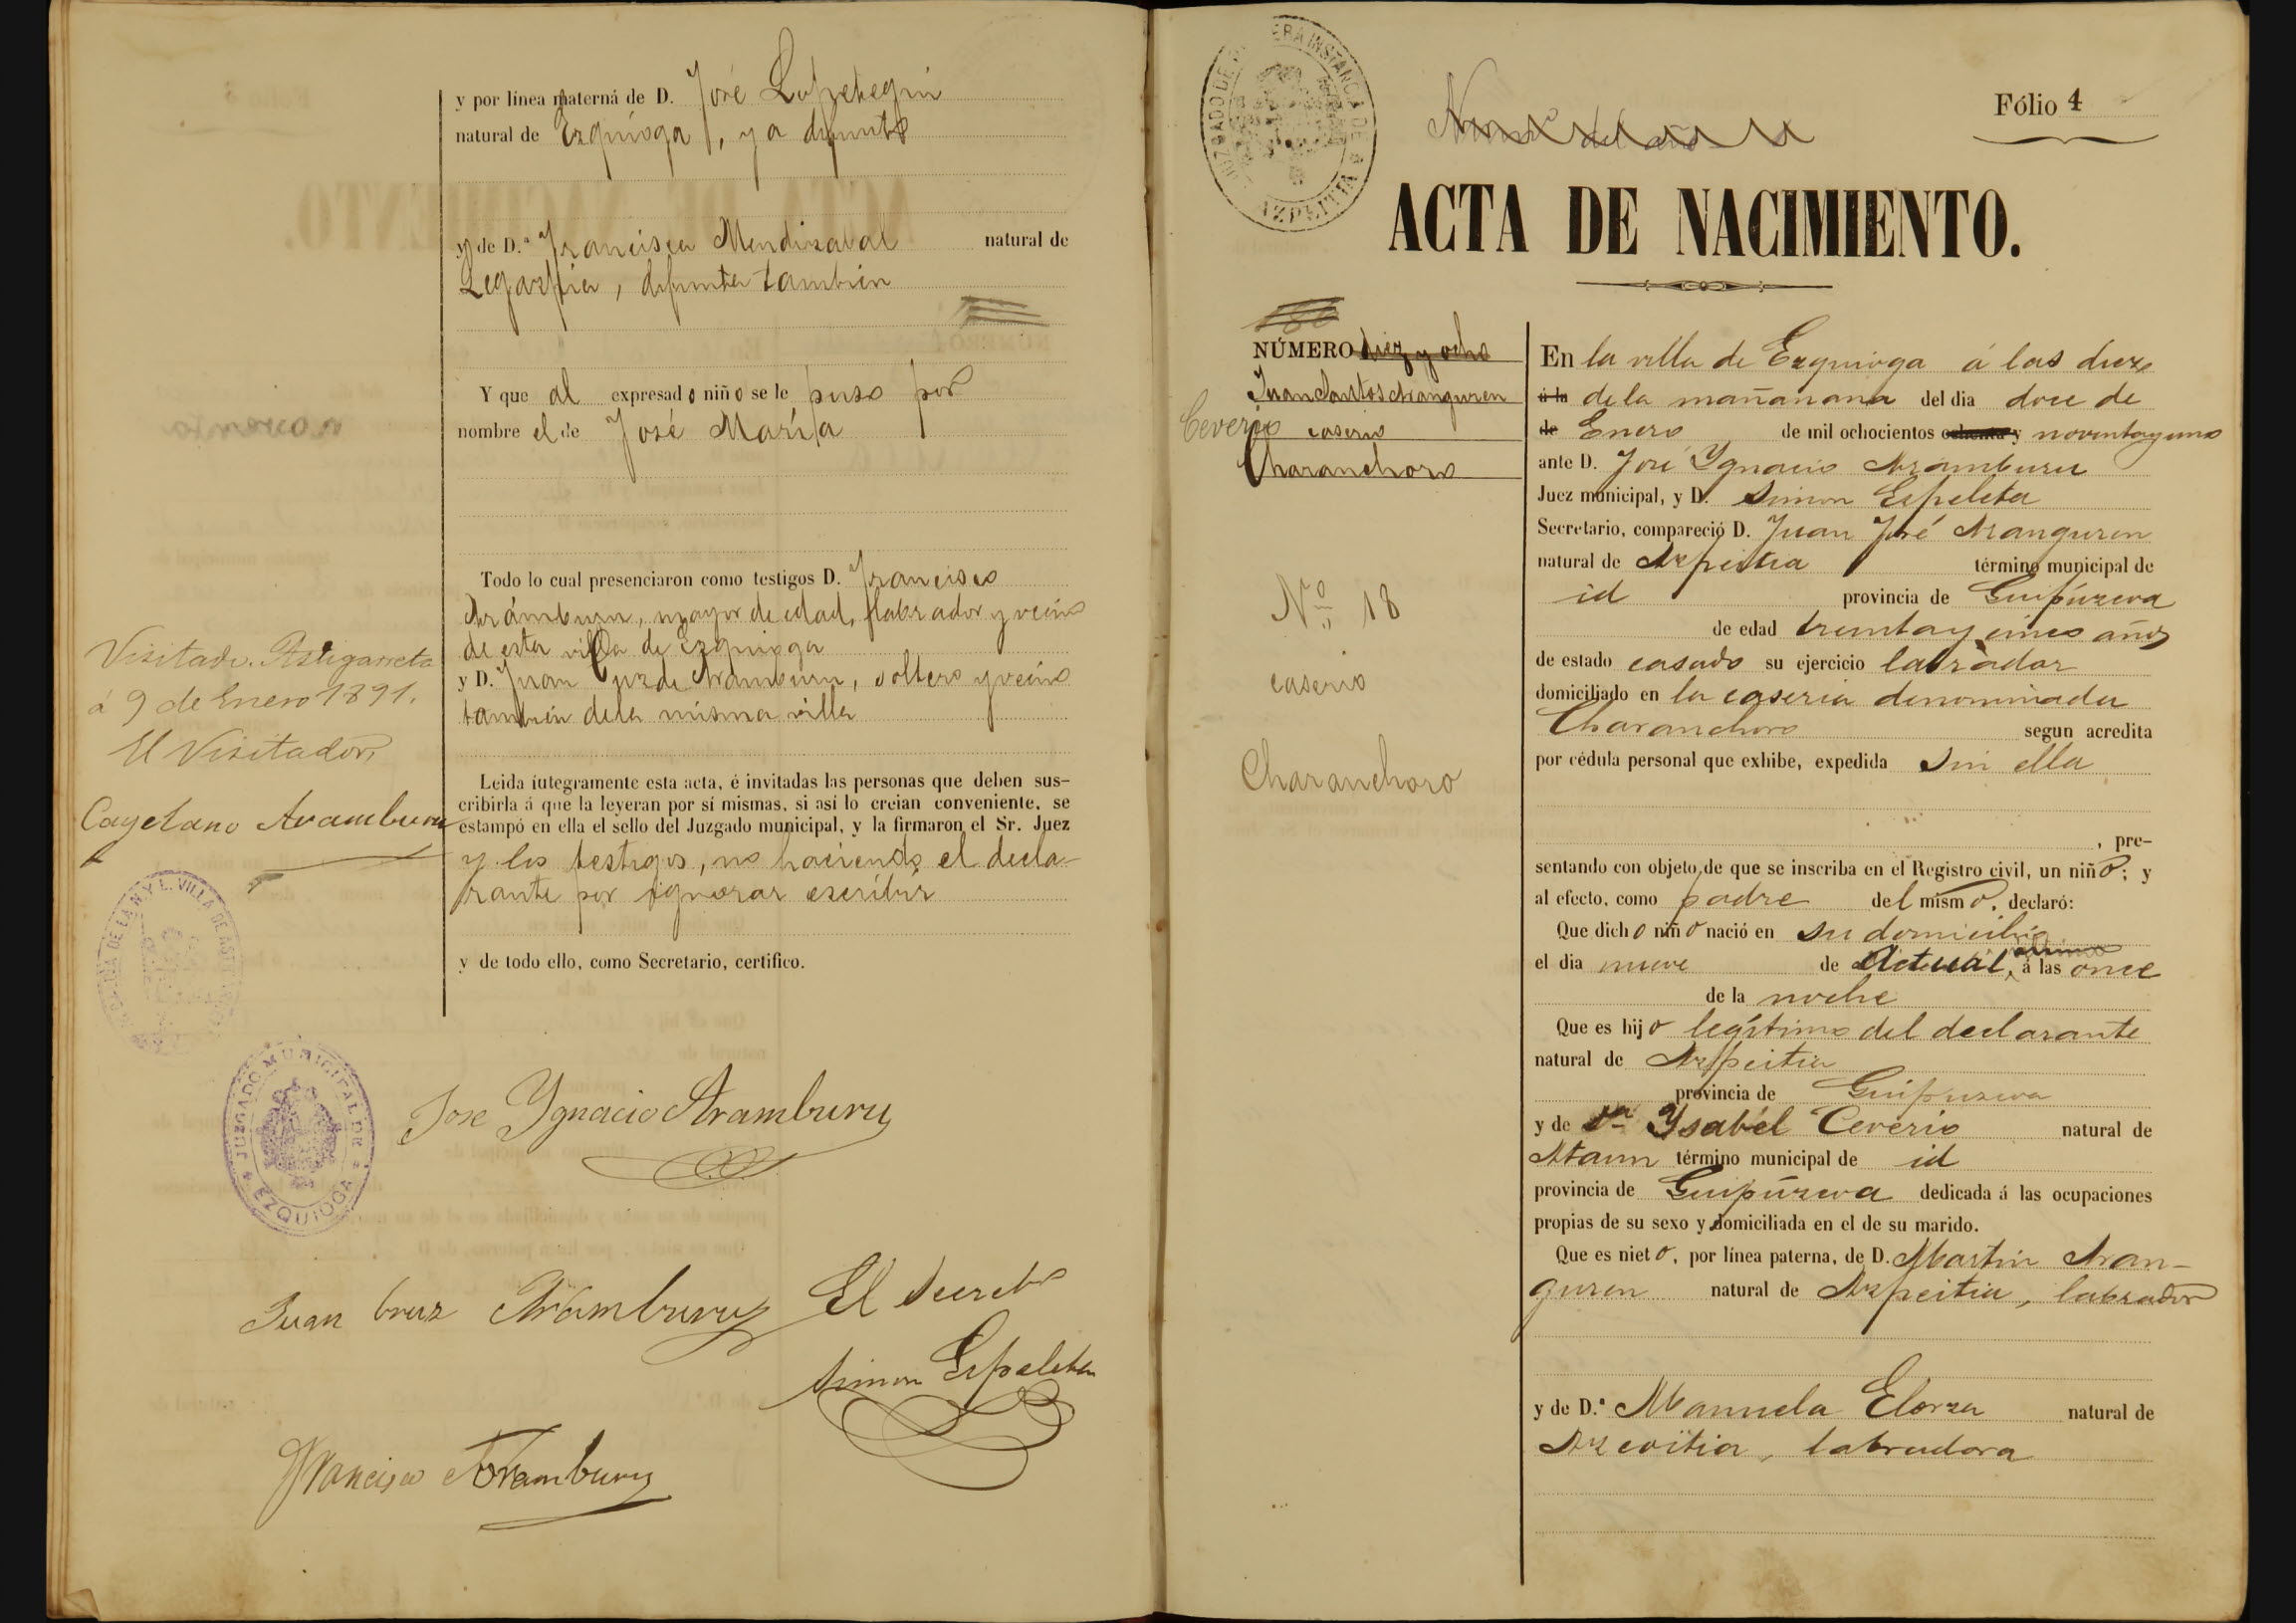 y por línea materna de D. José Lubetegui
natural de Ezquioga, ya difunto
y de D.ª Francisca Mendizabal natural de
Legazpia, difunta tambien
Y que al expresado niño se le puso por
nombre el de José María
Todo lo cual presenciaron como testigos D. Francisco
Arámburu, mayor de edad, labrador y vecino
de esta villa de Ezquioga
y D. Juan Cruz de Aramburu, soltero y vecino
tambien de la misma villa
Leida íntegramente esta acta, é invitadas las personas que deben sus-
cribirla á que la leyeran por sí mismas, si así lo creian conveniente, se
estampó en ella el sello del Juzgado municipal, y la firmaron el Sr. Juez
y los testigos, no haciendo el decla-
rante por ignorar escribir
y de todo ello, como Secretario, certifico.
Visitado. Astigarreta
á 9 de Enero 1891.
El Visitador,
Cayetano Aramburu
JUZGADO MUNICIPAL DE
EZQUIOGA
Jose Ygnacio Aramburu
Juan Cruz Aramburu
El Secreto
Simon Espeleta
Francisco Aramburu
JUZGADO DE PRIMERA INSTANCIA DE
AZPEITIA
Fólio 4
ACTA DE NACIMIENTO.
186
NÚMERO diez y ocho
Juan Santos Aranguren
Ceverio caserio
Charanchoro
Nº 18
caserio
Charanchoro
En la villa de Ezquioga á las diez
á la de la mañanana del dia doce de
de Enero de mil ochocientos ochenta y noventa y uno
ante D. José Ygnacio Aramburu
Juez municipal, y D. Simon Espeleta
Secretario, compareció D. Juan José Aranguren
natural de Azpeitia término municipal de
id provincia de Guipúzcoa
de edad treinta y cinco años
de estado casado su ejercicio labrador
domiciliado en la caseria denominada
Charanchoro segun acredita
por cédula personal que exhibe, expedida sin ella
, pre-
sentando con objeto de que se inscriba en el Registro civil, un niño; y
al efecto, como padre del mismo, declaró:
Que dicho niño nació en su domicilio
el dia nueve de Actual, á las once
de la noche
Que es hijo legítimo del declarante
natural de Azpeitia
provincia de Guipuzcoa
y de Dª Ysabel Ceverio natural de
Ataun término municipal de id
provincia de Guipúzcoa dedicada á las ocupaciones
propias de su sexo y domiciliada en el de su marido.
Que es nieto, por línea paterna, de D. Martin Aran-
guren natural de Azpeitia, labrador
y de D.ª Manuela Elorza natural de
Azcoitia, labradora